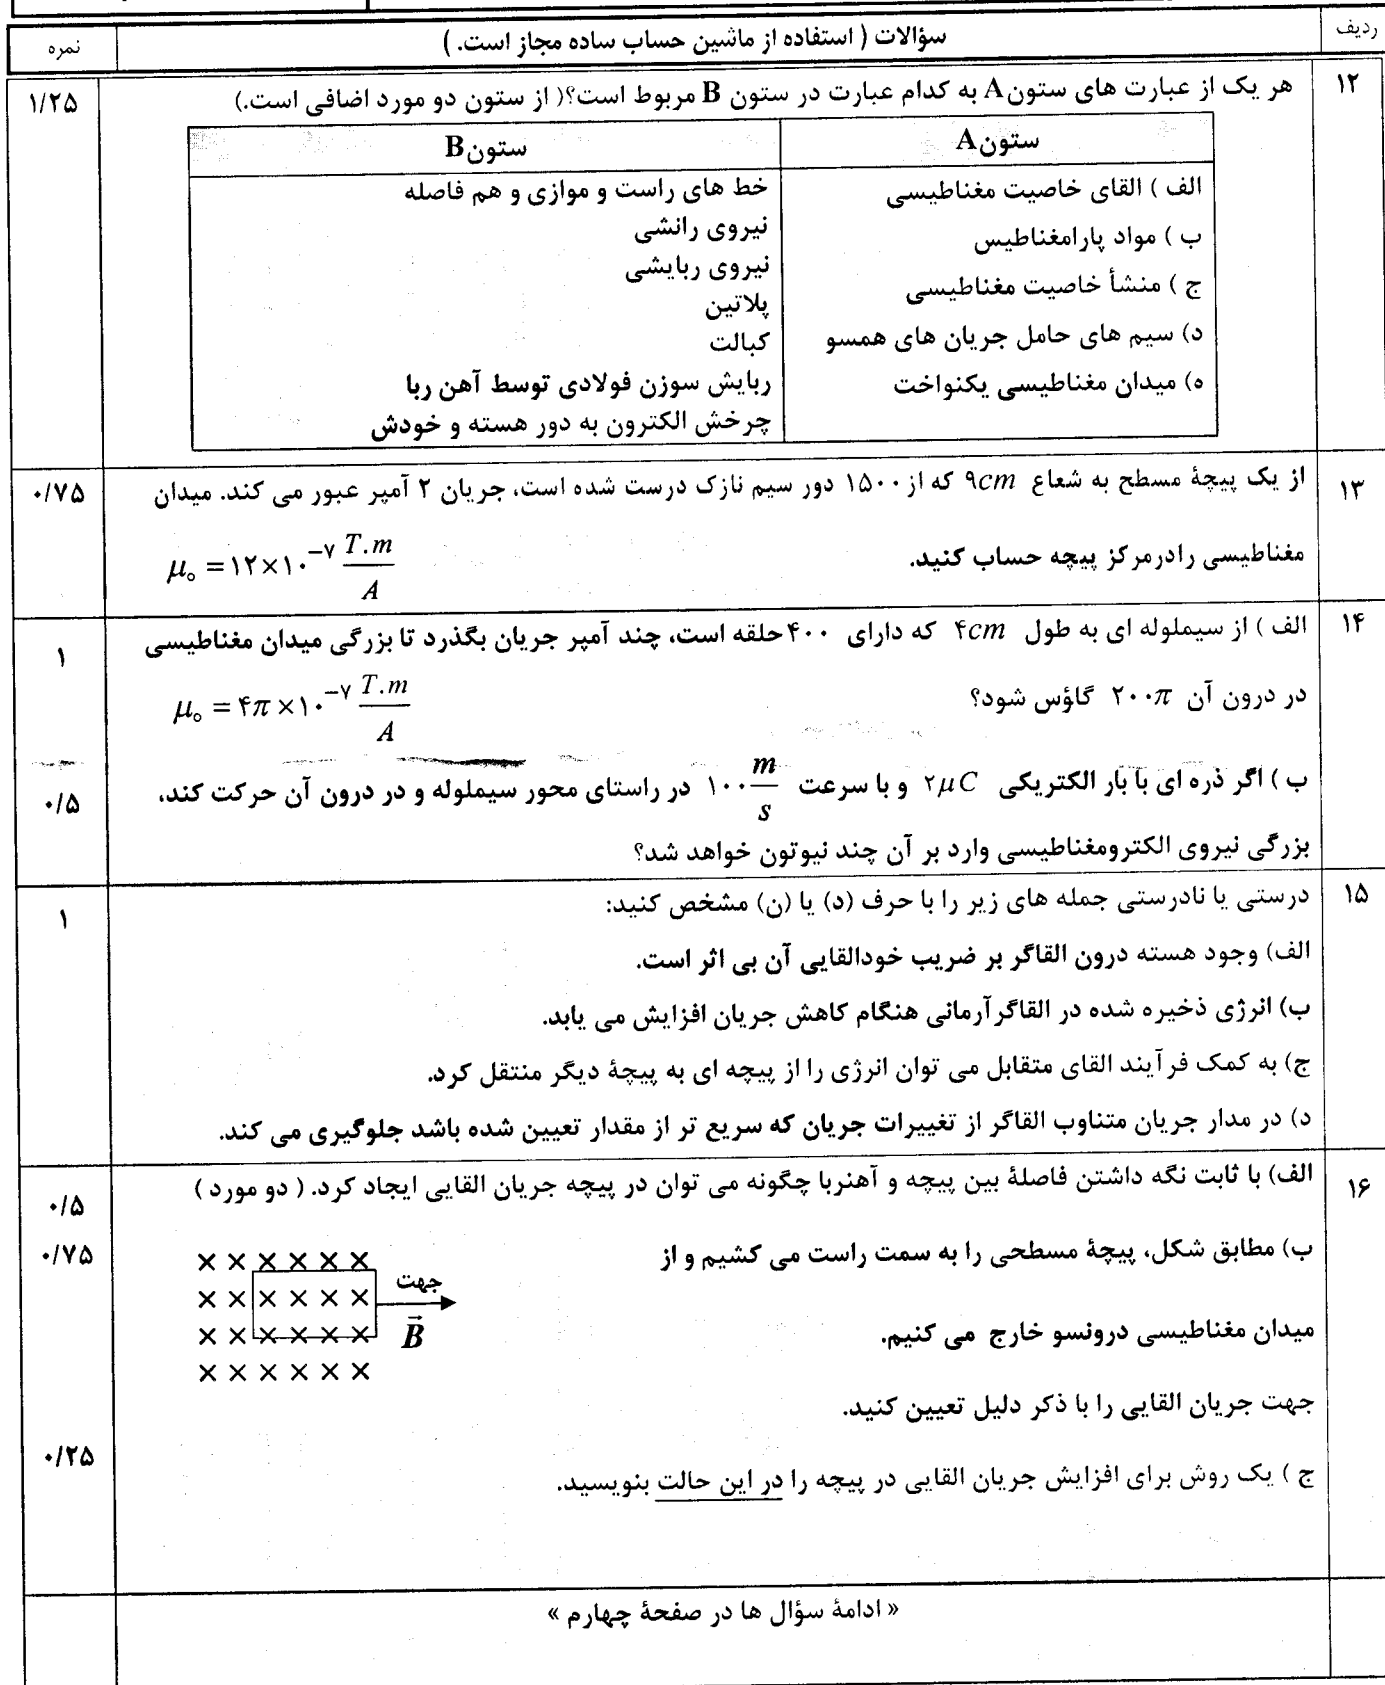 ردیف
سؤالات ( استفاده از ماشین حساب ساده مجاز است. )
نمره
۱۲
هر یک از عبارت های ستون A به کدام عبارت در ستون B مربوط است؟( از ستون دو مورد اضافی است.)
۱/۲۵
ستون A
ستون B
الف ) القای خاصیت مغناطیسی
ب ) مواد پارامغناطیس
ج ) منشأ خاصیت مغناطیسی
د) سیم های حامل جریان های همسو
ه) میدان مغناطیسی یکنواخت
خط های راست و موازی و هم فاصله
نیروی رانشی
نیروی ربایشی
پلاتین
کبالت
ربایش سوزن فولادی توسط آهن ربا
چرخش الکترون به دور هسته و خودش
۱۳
از یک پیچۀ مسطح به شعاع ۹cm که از ۱۵۰۰ دور سیم نازک درست شده است، جریان ۲ آمپر عبور می کند. میدان
۰/۷۵
مغناطیسی رادرمرکز پیچه حساب کنید. μ₀ = ۱۲×۱۰⁻⁷ T.m/A
۱۴
الف ) از سیملوله ای به طول ۴cm که دارای ۴۰۰ حلقه است، چند آمپر جریان بگذرد تا بزرگی میدان مغناطیسی
۱
در درون آن ۲۰۰π گاؤس شود؟ μ₀ = ۴π×۱۰⁻⁷ T.m/A
ب ) اگر ذره ای با بار الکتریکی ۲μC و با سرعت ۱۰۰ m/s در راستای محور سیملوله و در درون آن حرکت کند،
۰/۵
بزرگی نیروی الکترومغناطیسی وارد بر آن چند نیوتون خواهد شد؟
۱۵
درستی یا نادرستی جمله های زیر را با حرف (د) یا (ن) مشخص کنید:
۱
الف) وجود هسته درون القاگر بر ضریب خودالقایی آن بی اثر است.
ب) انرژی ذخیره شده در القاگر آرمانی هنگام کاهش جریان افزایش می یابد.
ج) به کمک فرآیند القای متقابل می توان انرژی را از پیچه ای به پیچۀ دیگر منتقل کرد.
د) در مدار جریان متناوب القاگر از تغییرات جریان که سریع تر از مقدار تعیین شده باشد جلوگیری می کند.
۱۶
الف) با ثابت نگه داشتن فاصلۀ بین پیچه و آهنربا چگونه می توان در پیچه جریان القایی ایجاد کرد. ( دو مورد )
۰/۵
ب) مطابق شکل، پیچۀ مسطحی را به سمت راست می کشیم و از
۰/۷۵
× × × × × ×
× × × × × × جهت
× × × × × × B⃗
× × × × × ×
میدان مغناطیسی درونسو خارج می کنیم.
جهت جریان القایی را با ذکر دلیل تعیین کنید.
ج ) یک روش برای افزایش جریان القایی در پیچه را در این حالت بنویسید.
۰/۲۵
« ادامۀ سؤال ها در صفحۀ چهارم »